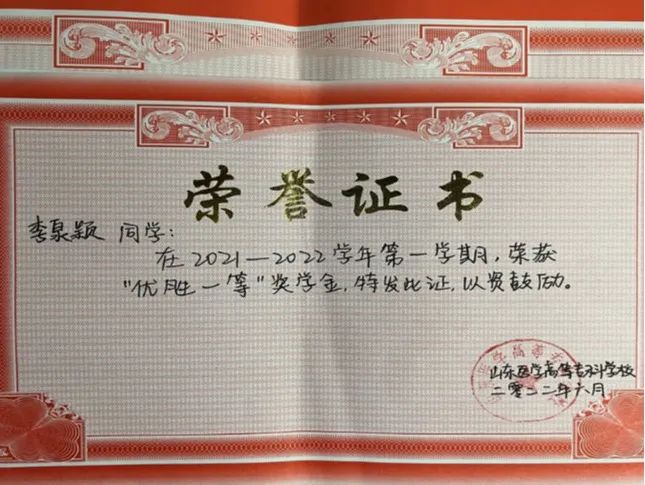 荣誉证书
李泉颖 同学:
在2021—2022学年第一学期,荣获
"优胜一等"奖学金,特发此证,以资鼓励。
山东医学高等专科学校
二零二二年六月